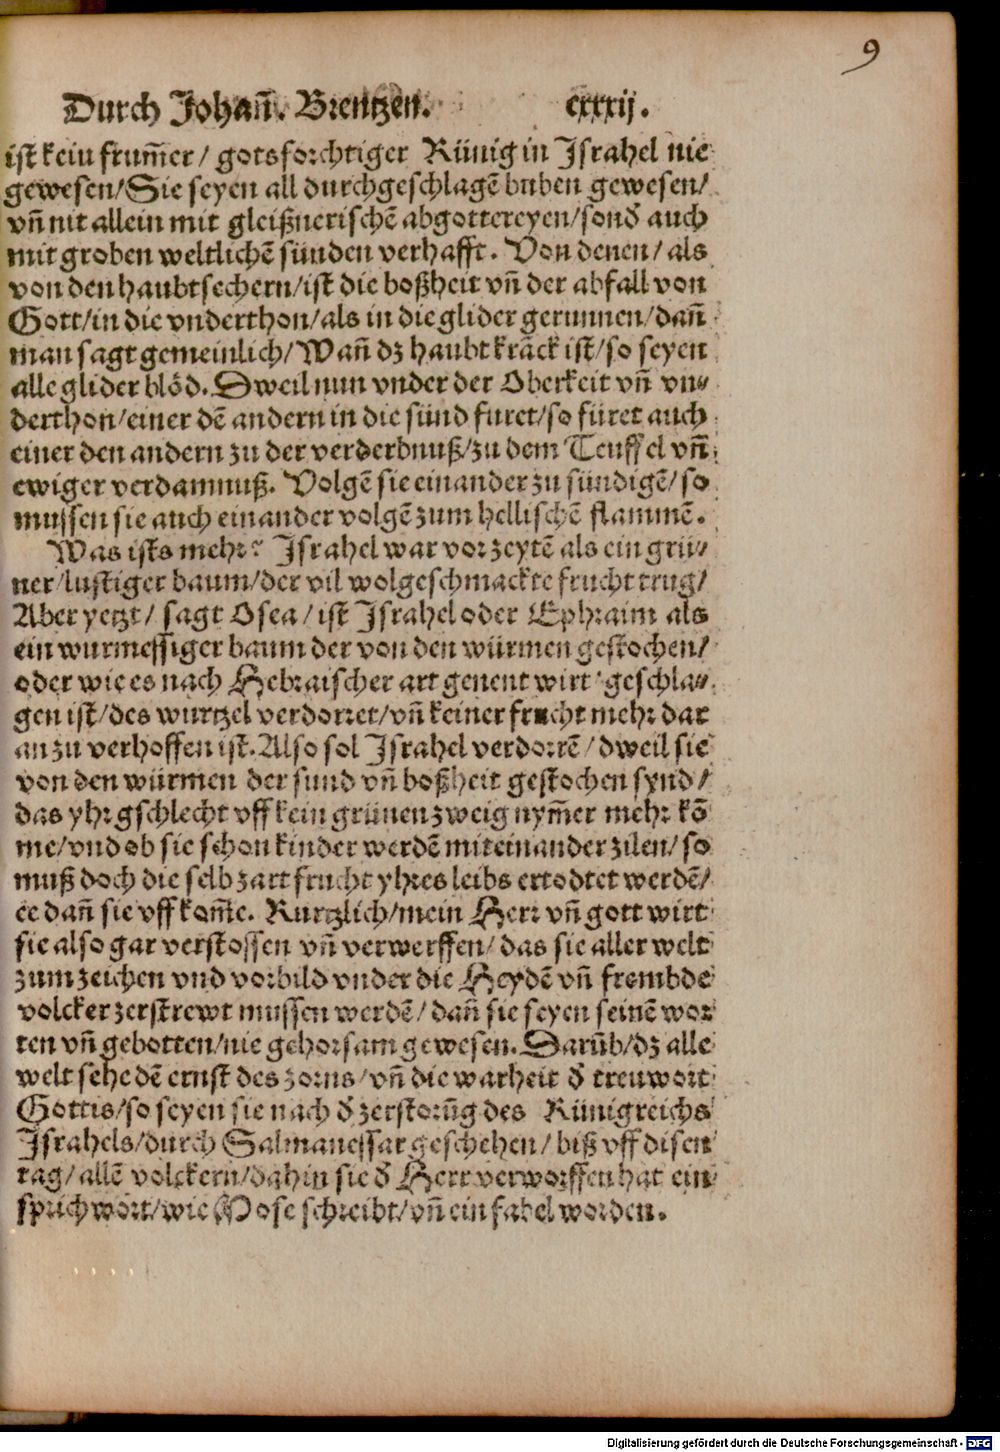 9
Durch Johañ. Brentzen. cxxxij.
ist kein frum̃er / gotsforchtiger Künig in Israhel nie
gewesen/Sie seyen all durchgeschlagẽ buben gewesen/
vñ nit allein mit gleißnerischẽ abgottereyen/sonđ auch
mit groben weltlichẽ sünden verhafft. Von denen/ als
von den haubtsechern/ist die boßheit vñ der abfall von
Gott/in die vnderthon/als in die glider gerunnen/dañ
man sagt gemeinlich/Wañ dz haubt krãck ist/so seyen
alle glider blöd. Dweil nun vnder der Oberkeit vñ vn⸗
derthon/einer dẽ andern in die sünd furet/so füret auch
einer den andern zu der verderbnuß/zu dem Teuffel vñ
ewiger verdamnuß. Volgẽ sie einander zu sündigẽ/so
mussen sie auch einander volgẽ zum hellischẽ flammẽ.
Was ists mehr? Israhel war vor zeytẽ als ein grü⸗
ner/lustiger baum/der vil wolgeschmackte frucht trug/
Aber yetzt/ sagt Osea/ ist Israhel oder Ephraim als
ein wurmessiger baum der von den würmen gestochen/
oder wie es nach Hebraischer art genent wirt/geschla⸗
gen ist/des wurtzel verdorret/vñ keiner frucht mehr dar
an zu verhoffen ist. Also sol Israhel verdorrẽ/dweil sie
von den würmen der sund vñ boßheit gestochen synd/
das yhr gschlecht vff kein grünen zweig nym̃er mehr kõ
me/vnd ob sie schon kinder werdẽ miteinander zilen/so
muß doch die selb zart frucht yhres leibs ertodtet werdẽ/
ee dañ sie vff kom̃e. Kurtzlich/mein Herr vñ gott wirt
sie also gar verstossen vñ verwerffen/das sie aller welt
zum zeichen vnd vorbild vnder die Heydẽ vñ frembde
volcker zerstrewt mussen werdẽ/ dañ sie seyen seinẽ wor
ten vñ gebotten/nie gehorsam gewesen. Darũb/dz alle
welt sehe dẽ ernst des zorns/vñ die warheit đ treuwort
Gottis/so seyen sie nach đ zerstorũg des Künigreichs
Israhels/durch Salmanessar geschehen/ biß vff disen
tag/ allẽ volckern/dahin sie đ Herr verworffen hat ein
sprichwort/wie Mose schreibt/vñ ein fabel worden.
Digitalisierung gefördert durch die Deutsche Forschungsgemeinschaft - DFG